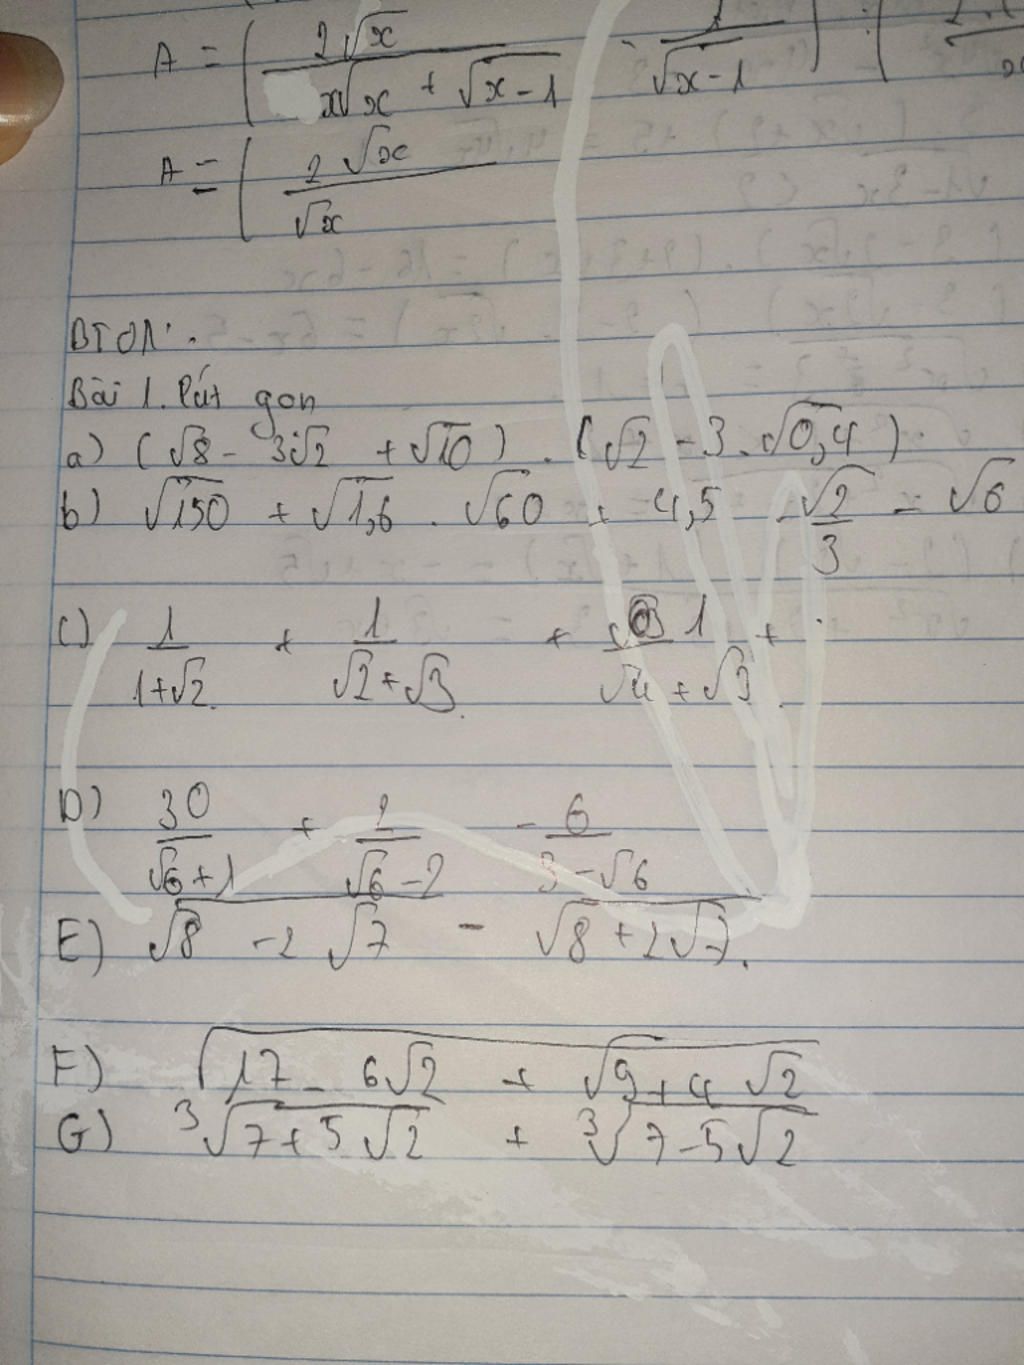 A = ( 2√x / x√x + √x-1 - 1 / √x-1 ) : (
A = ( 2√x / √x
BTON:
Bài 1. Rút gọn
a) (√8 - 3√2 + √10) . (√2 - 3.√0,4)
b) √150 + √1,6 . √60 + 4,5 √2/3 - √6
c) 1 / 1+√2 + 1 / √2+√3 + 1 / √4+√3 +
D) 30 / √6+1 + 2 / √6-2 - 6 / 3-√6
E) √8 - 2√7 - √8+2√7.
F) √17 - 6√2 + √9+4√2
G) ³√7+5√2 + ³√7-5√2